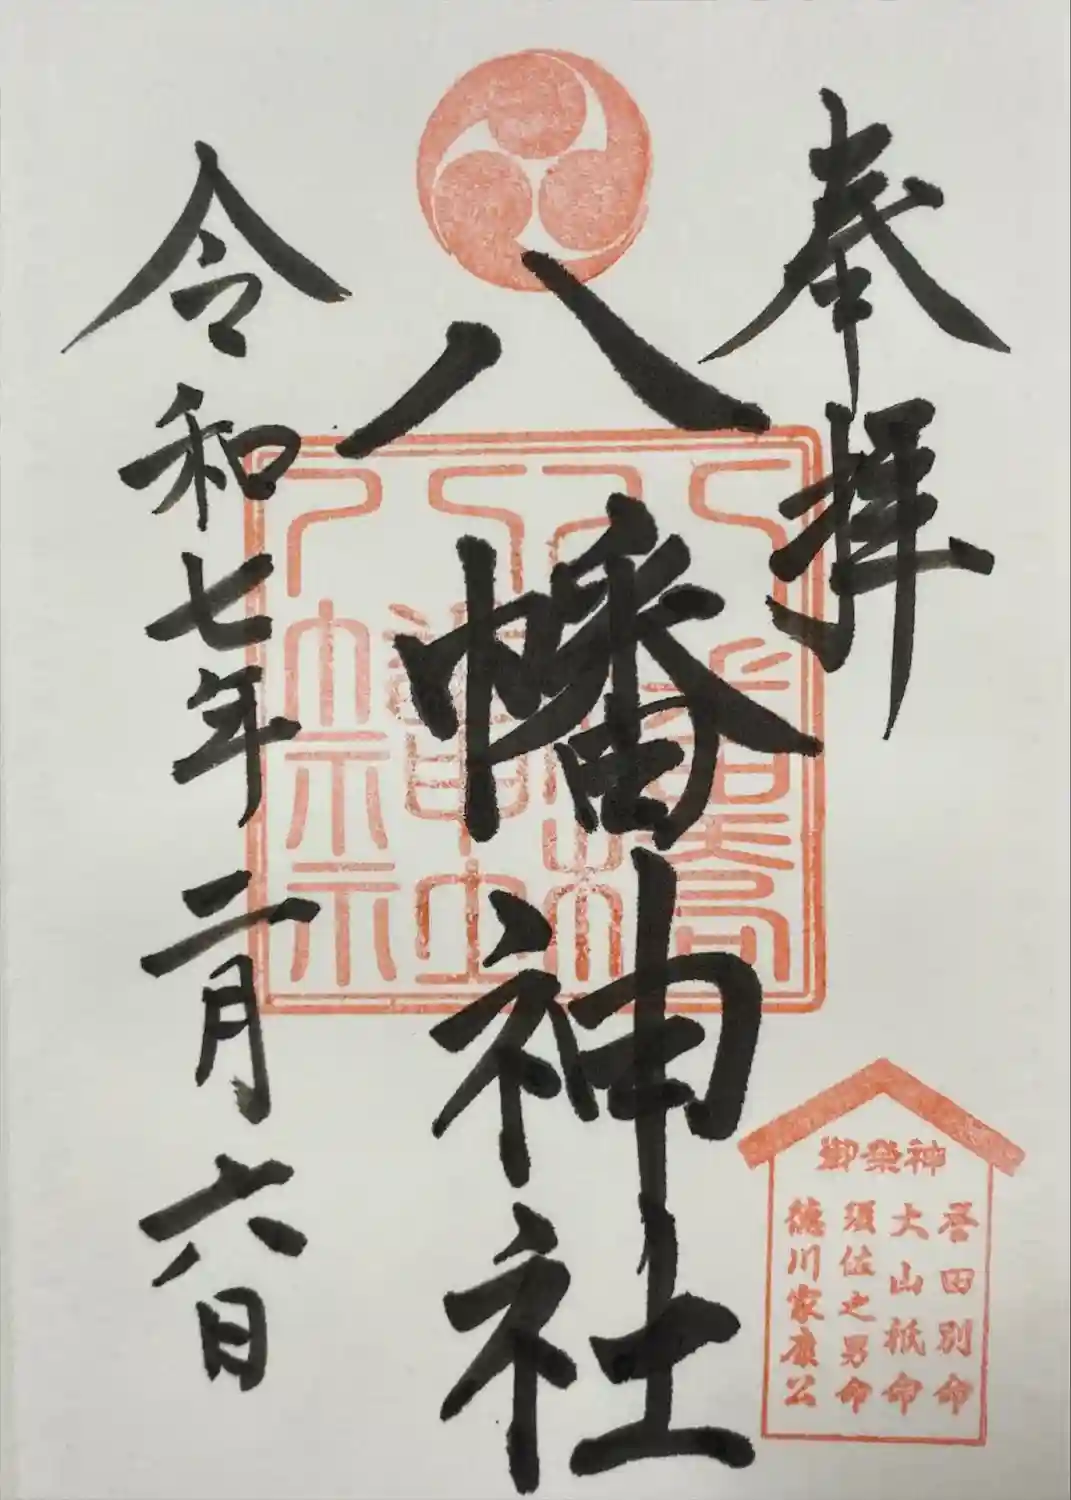 奉拝
八幡神社
令和七年二月六日
御祭神
誉田別命
大山祇命
須佐之男命
徳川家康公